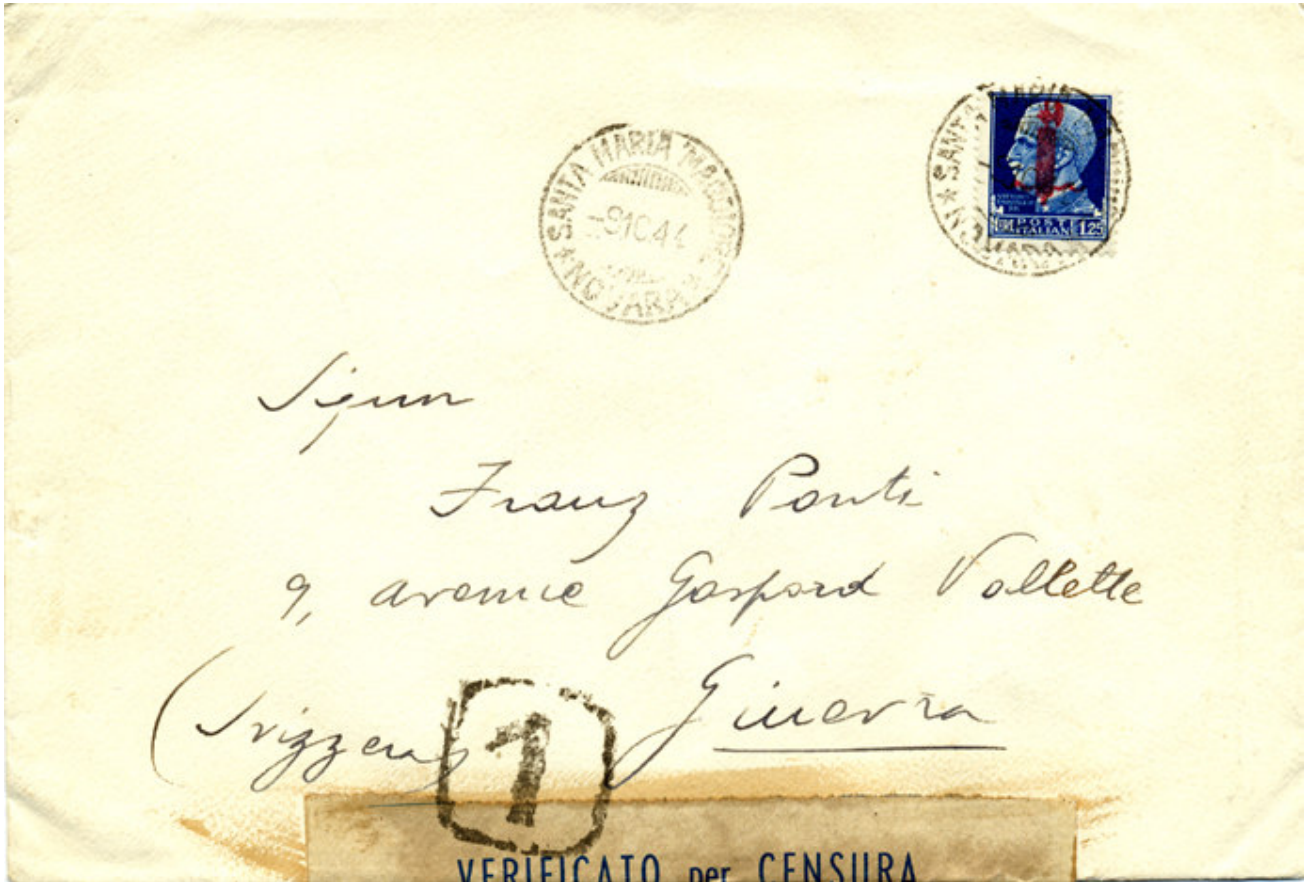 SANTA MARIA MAGGIORE
-9 10.44
* NOVARA *
POSTE
ITALIANE
1.25
Signor
Franz Ponti
9, avenue Gaspard Vallette
Ginevra
(Svizzera)
1
VERIFICATO per CENSURA